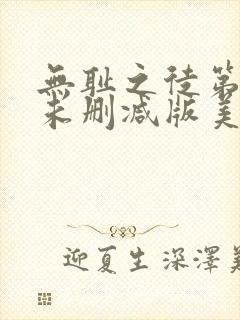 無耻之徒第
未删减版美
迎夏生深澤